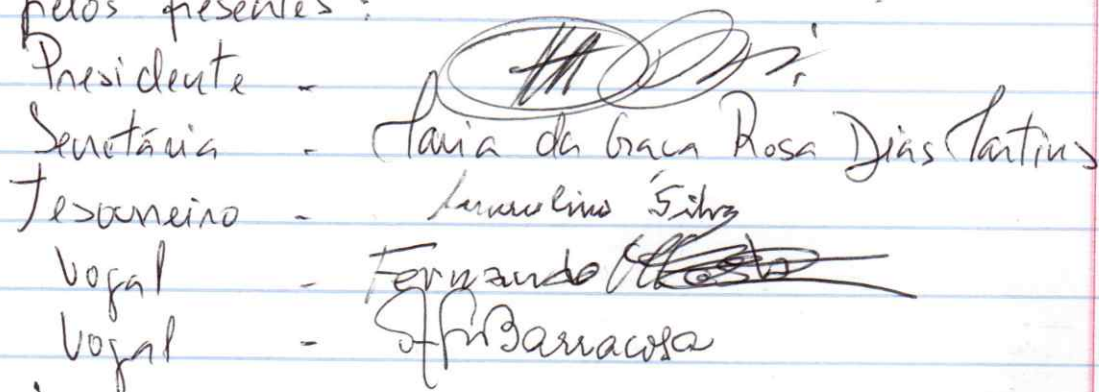 pelos presentes:
Presidente -
Secretária - Maria da Graça Rosa Dias Martins
Tesoureiro - Silva
Vogal - Fernando
Vogal - Barracosa